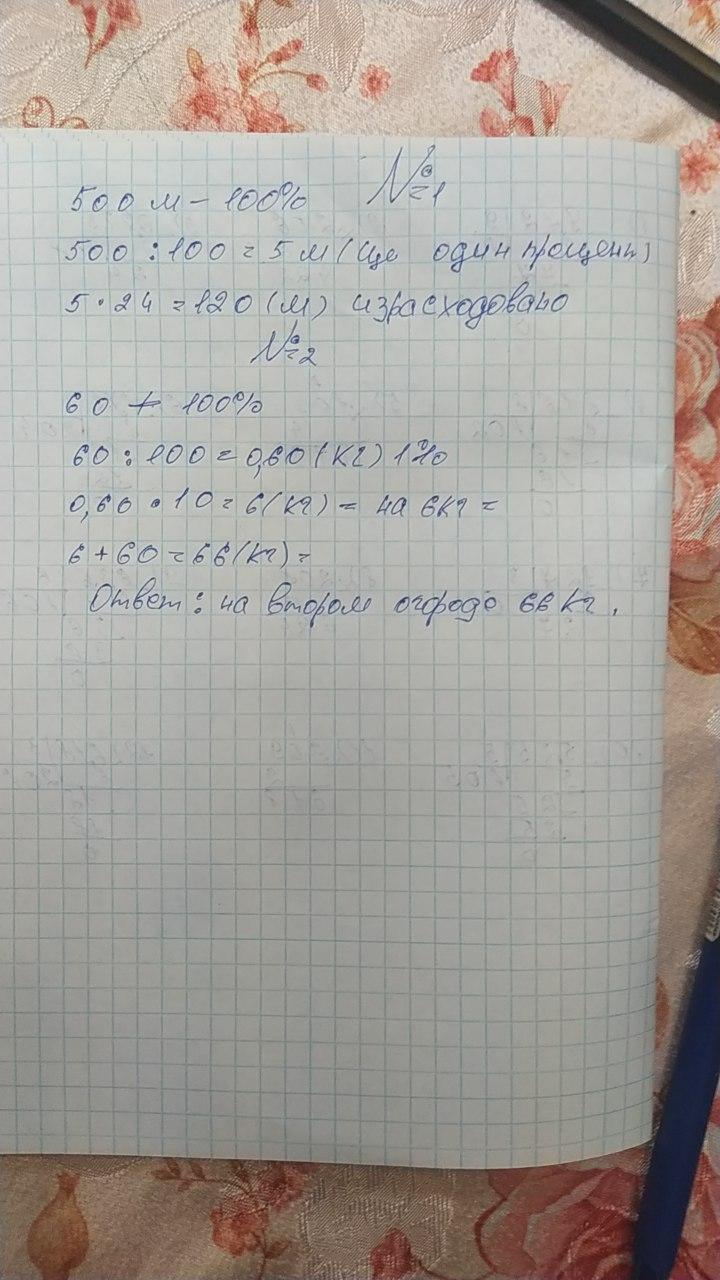 №1
500 м - 100%
500 : 100 = 5 м (це один процент)
5 · 24 = 120 (м) израсходовано
№2
60 + 100%
60 : 100 = 0,60 (кг) 1%
0,60 · 10 = 6 (кг) = на 6 кг =
6 + 60 = 66 (кг) =
Ответ: на втором огороде 66 кг.